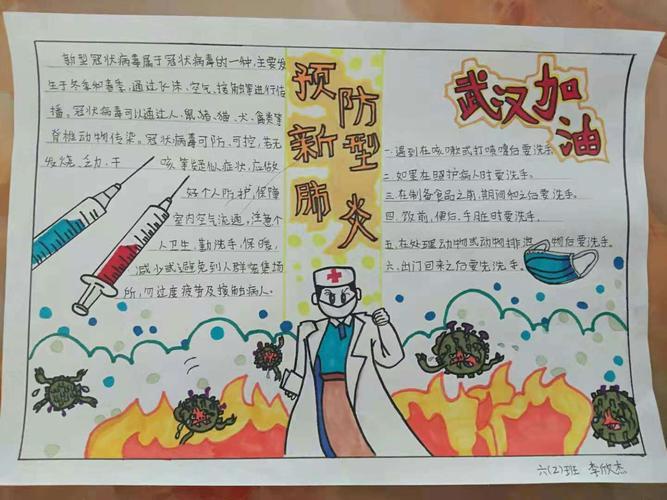 新型冠状病毒属于冠状病毒的一种,主要发
生于冬季和春季,通过飞沫、空气、接触等进行传
播。冠状病毒可以通过人、鼠、猪、猫、犬、禽类等
脊椎动物传染。冠状病毒可防、可控,若无
发烧、乏力、干 咳等疑似症状,应做
好个人防护,保障
室内空气流通,注意个
人卫生,勤洗手,保暖,
减少或避免到人群密集场
所,勿过度疲劳及接触病人。
预防
新型
肺炎
武汉加
油
一.遇到在咳嗽或打喷嚏后要洗手。
二.如果在照护病人时要洗手。
三.在制备食品之前,期间和之后要洗手。
四.饭前,便后,手脏时要洗手。
五.在处理动物或动物排泄物后要洗手。
六.出门回来之后要先洗手。
六(2)班 李欣杰